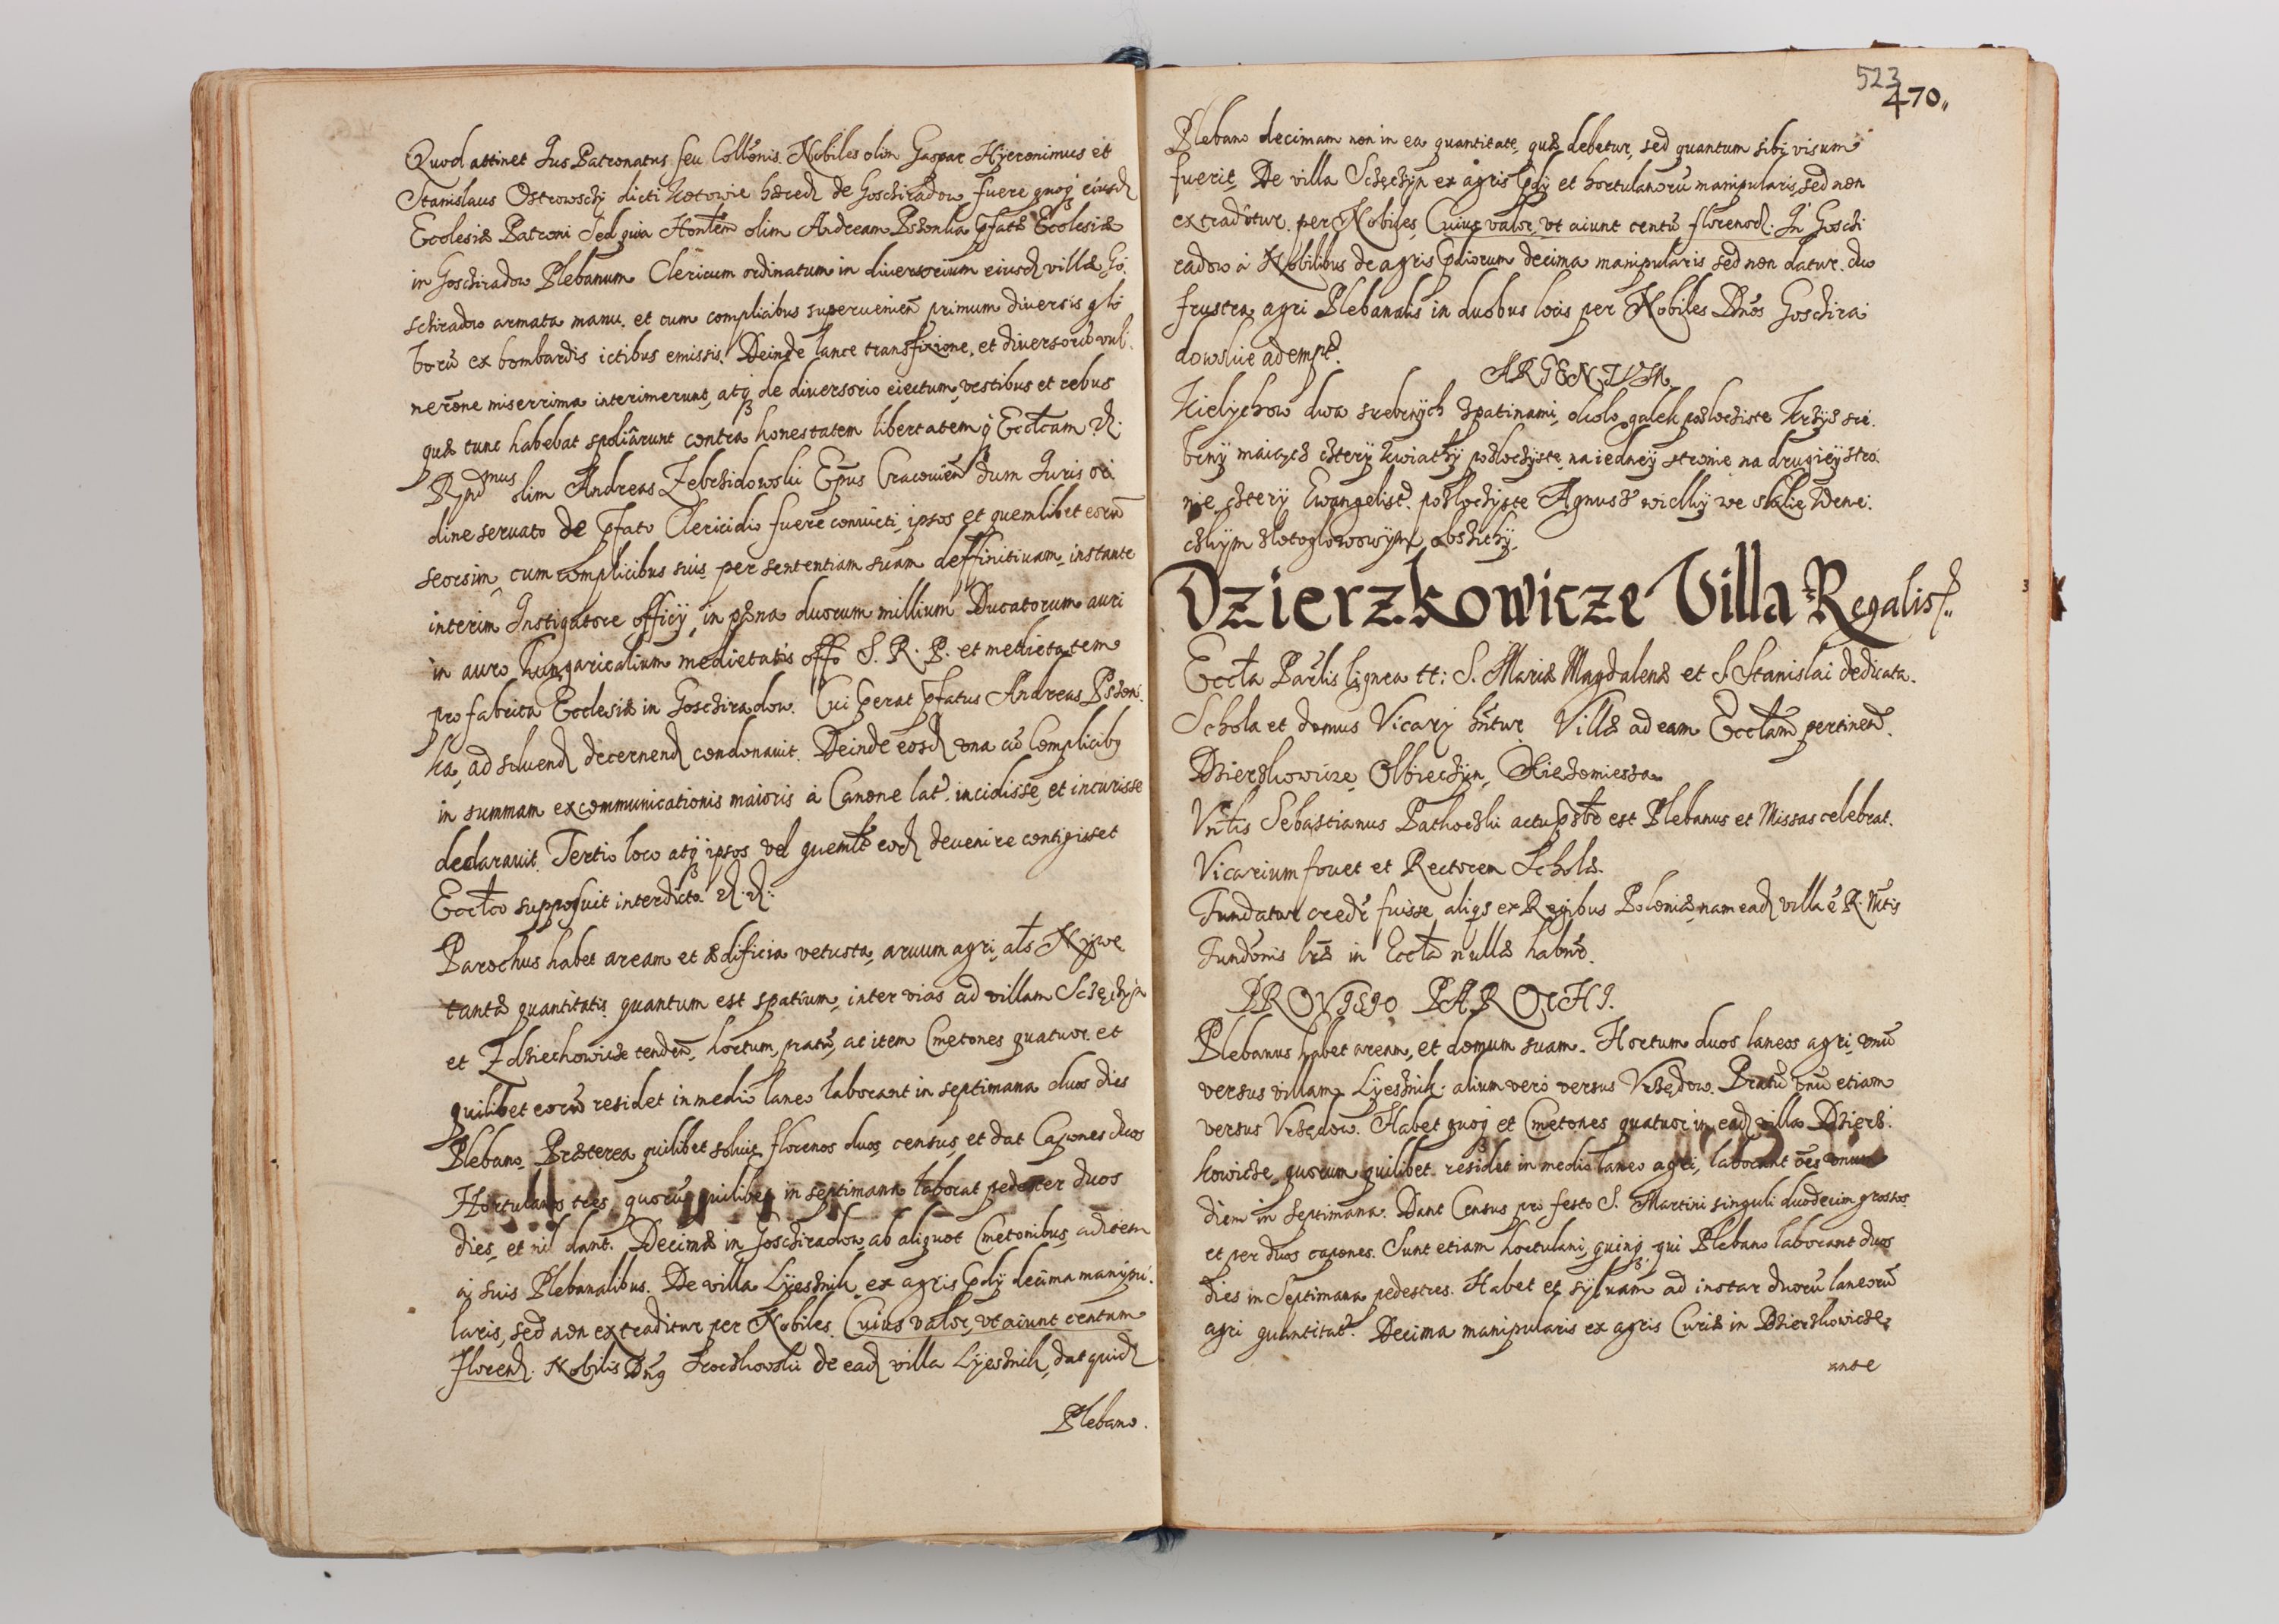 Quod attinet Jus Patronatus seu Collōnis. Nobiles olim Gaspar Hyeronimus et
Stanislaus Ostrowschÿ dicti Kotowie hæred de Goschiradow fuere quoq eiusd
Ecclesiæ Patroni Sed quia Honlem olim Andream Pszonka pfatæ Ecclesiæ
in Goschiradow Plebanum Clericum ordinatum in diversorium eiusd villæ Go
schiradow armata manu. et cum complicibus supervenien primum diversis glo
borū ex bombardis ictibus emissis. Deinde lance transfixione, et diversorū vul
nerōne miserrima interimerunt, atq de diversorio eiectum, vestibus et rebus
quæ tunc habebat spoliârunt contra honestatem libertatem q Ecclcam &.
Rndmus olim Andreas Zebrzidowski Epus Cracovien dum Juris or
dine servato de pfato Clericidio fuere convicti, ipsos et quemlibet eorū
seorsim, cum complicibus suis per sententiam suam deffinitivam instante
interim Instigatore officÿ, in pæna duorum millium Ducatorum auri
in auro hungaricalium medietatis offo S. R. P. et medietatem
pro fabrica Ecclesiæ in Goschiradow. Cui perat pfatus Andreas Pszon
ka, ad solvend decernend condonavit. Deinde eosd una cū Complicibq
in summam excommunicationis maioris à Canone lat. incidisse, et incurisse
declaravit. Tertio loco atq ipsos vel quemlt eord devenire contigisset
Ecclco supposuit interdicto &.&.
Parochus habet aream et ædificia vetusta, arvum agri, als Nÿwe
tantæ quantitatis quantum est spatium, inter vias ad villam Sczęchÿn
et Zdziechowicze tenden, hortum, pratū, ac item Cmetones quatuor et
quilibet eorū residet in medio laneo laborant in septimana duos dies
Plebano. Præterea quilibet solvit florenos duos census, et dat Capones duos
Hortulanos tres, quorū quilibet in septimana laborat pedester duos
dies, et nil dant. Decimæ in Goschiradow, ab aliquot Cmetonibus, ad item
a suis Plebanalibus. De villa Lÿesznik ex agris pdÿ decima manipu
laris, sed non extraditur per Nobiles. Cuius valor, vt aiunt centum
florend. Nobilis Dnq Srochowski de ead villa Lÿesznik, dat quid
Plebano.
523
470
Plebano decimam non in ea quantitate, quæ debetur, sed quantum sibi visum
fuerit. De villa Sczęchÿn ex agris pdÿ et hortulanorū manipularis, sed non
extraditur per Nobiles, Cuius valor, vt aiunt centū florenod. In Goschi
radow à Nobilibus de agris pdiorum decima manipularis sed non datur. duo
frustra agri Plebanalis in duobus locis per Nobiles Dnos Goschira
dowskie adempt.
ARGENTVM
Kielÿchow dwa srebrnÿch spatinami, okolo galek pozlochiste Krzÿz sre
brnÿ maiących cztery kwiatkÿ pozlochÿste, na iedneÿ stronie na drugieÿ stro
nie czterÿ Ewangelist. pozlochÿste Agnusz wielkÿ we skalie Wene
czkÿm zlotoglowowÿm obszitÿ.
Dzierzkowicze Villa Regalis
Eccla Parlis lignea tt: S. Mariæ Magdalenæ et S Stanislai dedicata.
Schola et domus Vicarÿ hntur. Villæ ad eam Ecclam pertinen.
Dzierzkowicze, Olbiechÿn, Kiezomiesza
Vnlis Sebastianus Pathoczki actu pbr est Plebanus et Missas celebrat.
Vicarium fovet et Rectorem Scholæ.
Fundatur credr fuisse, aliqs ex Regibus Poloniæ, nam ead villa ē R. Mtis
Fundōnis lræ in Eccla nullæ habnr.
PROVISIO PAROCHI.
Plebanus habet aream, et domum suam. Hortum duos laneos agri, vnū
versus villam Lÿesznik: alium vero versus Vrzędow. Pratū vnū etiam
versus Vrzędow. Habet quoq et Cmetones quatuor in ead villa Dzierz
kowicze, quorum quilibet residet in medio laneo agri, laborant oēs vnum
diem in Septimana. Dant Census pro festo S. Martini singuli duodecim grossos
et per duos capones. Sunt etiam hortulani, quinq qui Plebano laborant duos
dies in Septimana pedestres. Habet et sÿlvam ad instar duorū laneorū
agri quantitat. Decima manipularis ex agris Curiæ in Dzierzkowicze,
ante